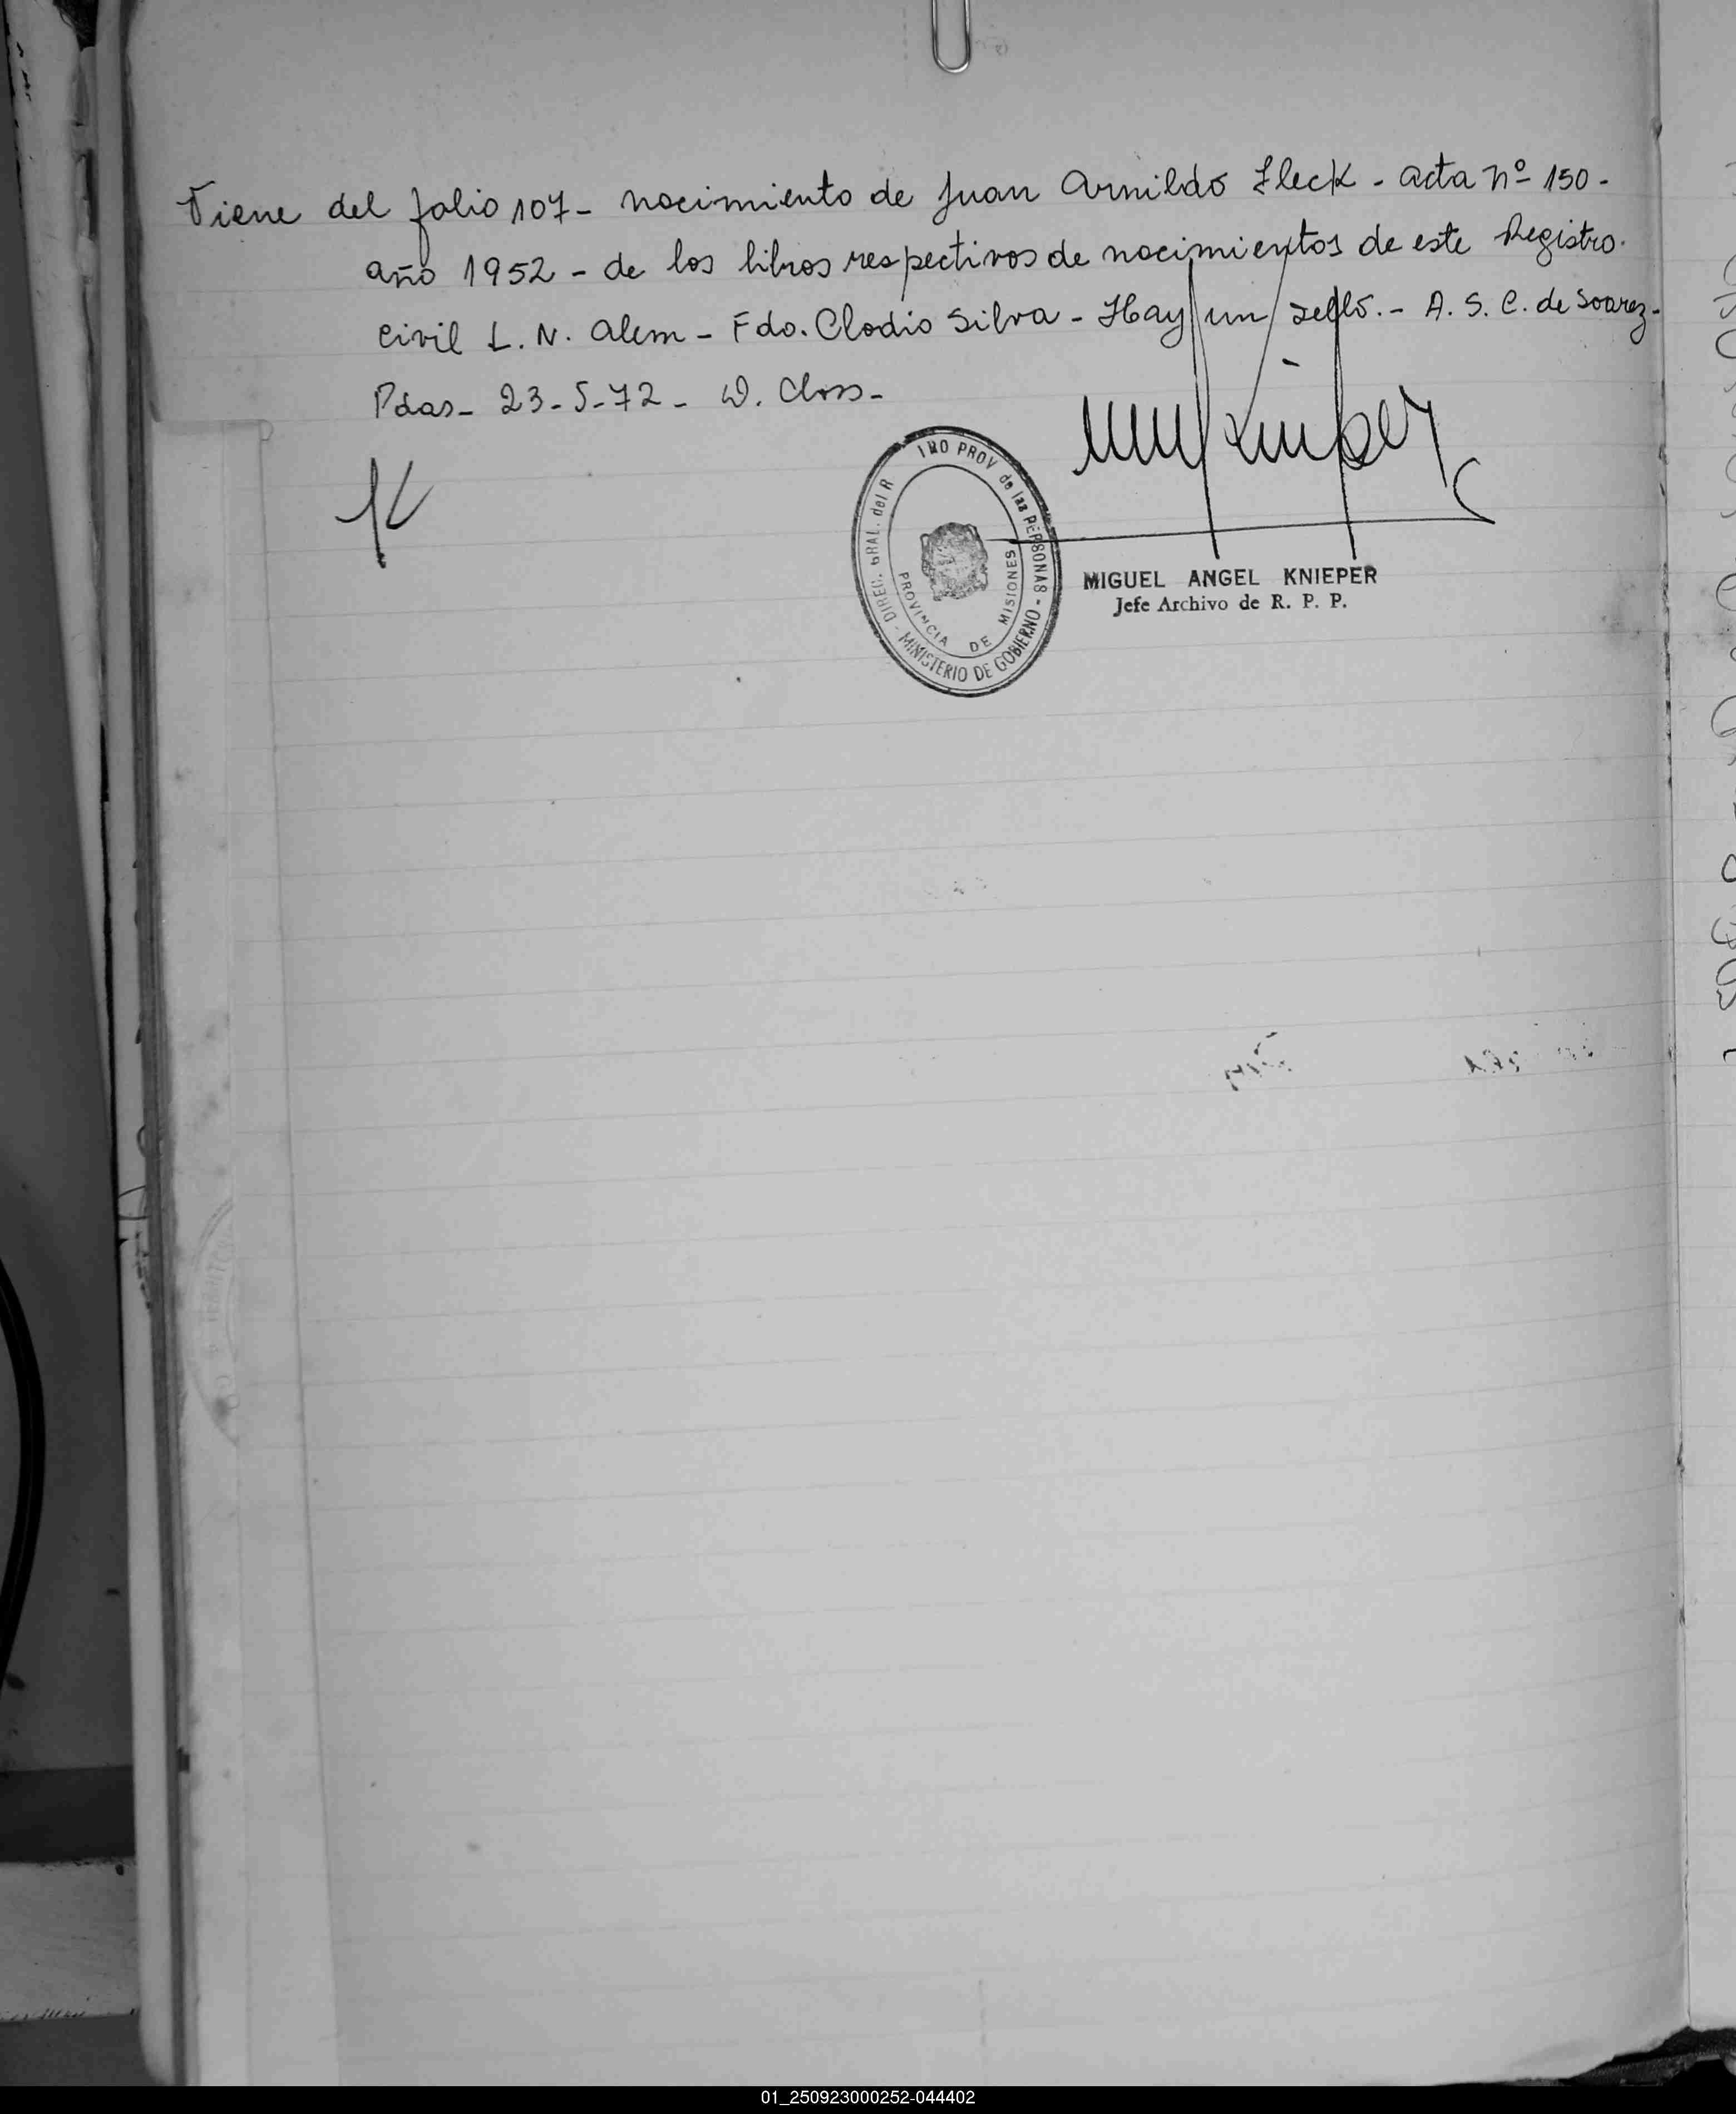 Viene del folio 107- nacimiento de Juan Arnildo Fleck - acta nº 150-
año 1952 - de los libros respectivos de nacimientos de este Registro.
Civil L. N. Alem - Fdo. Clodio Silva - Hay un sello. - A. S. C. de Soarez-
Pdas- 23-5-72- W. Closs-
DIREC. GRAL. del R INO PROV de las PERSONAS - MINISTERIO DE GOBIERNO -
PROVINCIA DE MISIONES
MIGUEL ANGEL KNIEPER
Jefe Archivo de R. P. P.
01_250923000252-044402